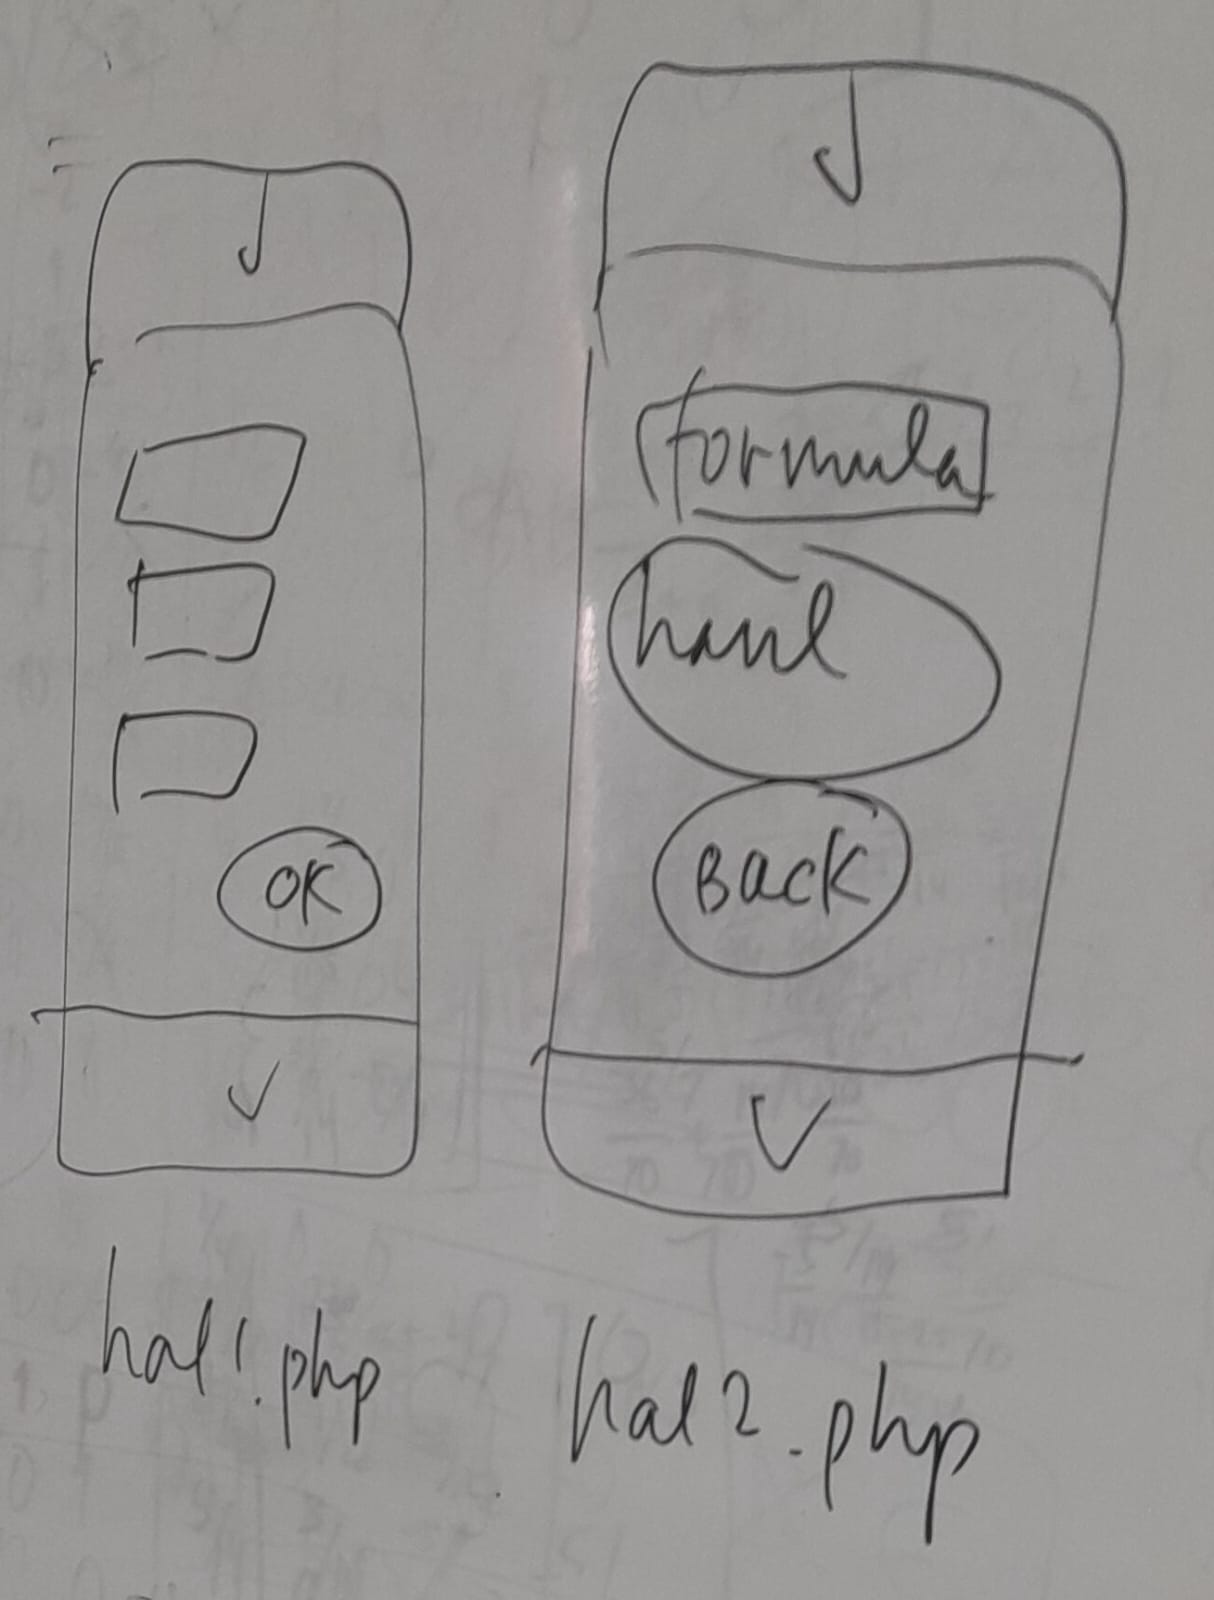 OK
hal1.php
formula
hasil
Back
hal2.php